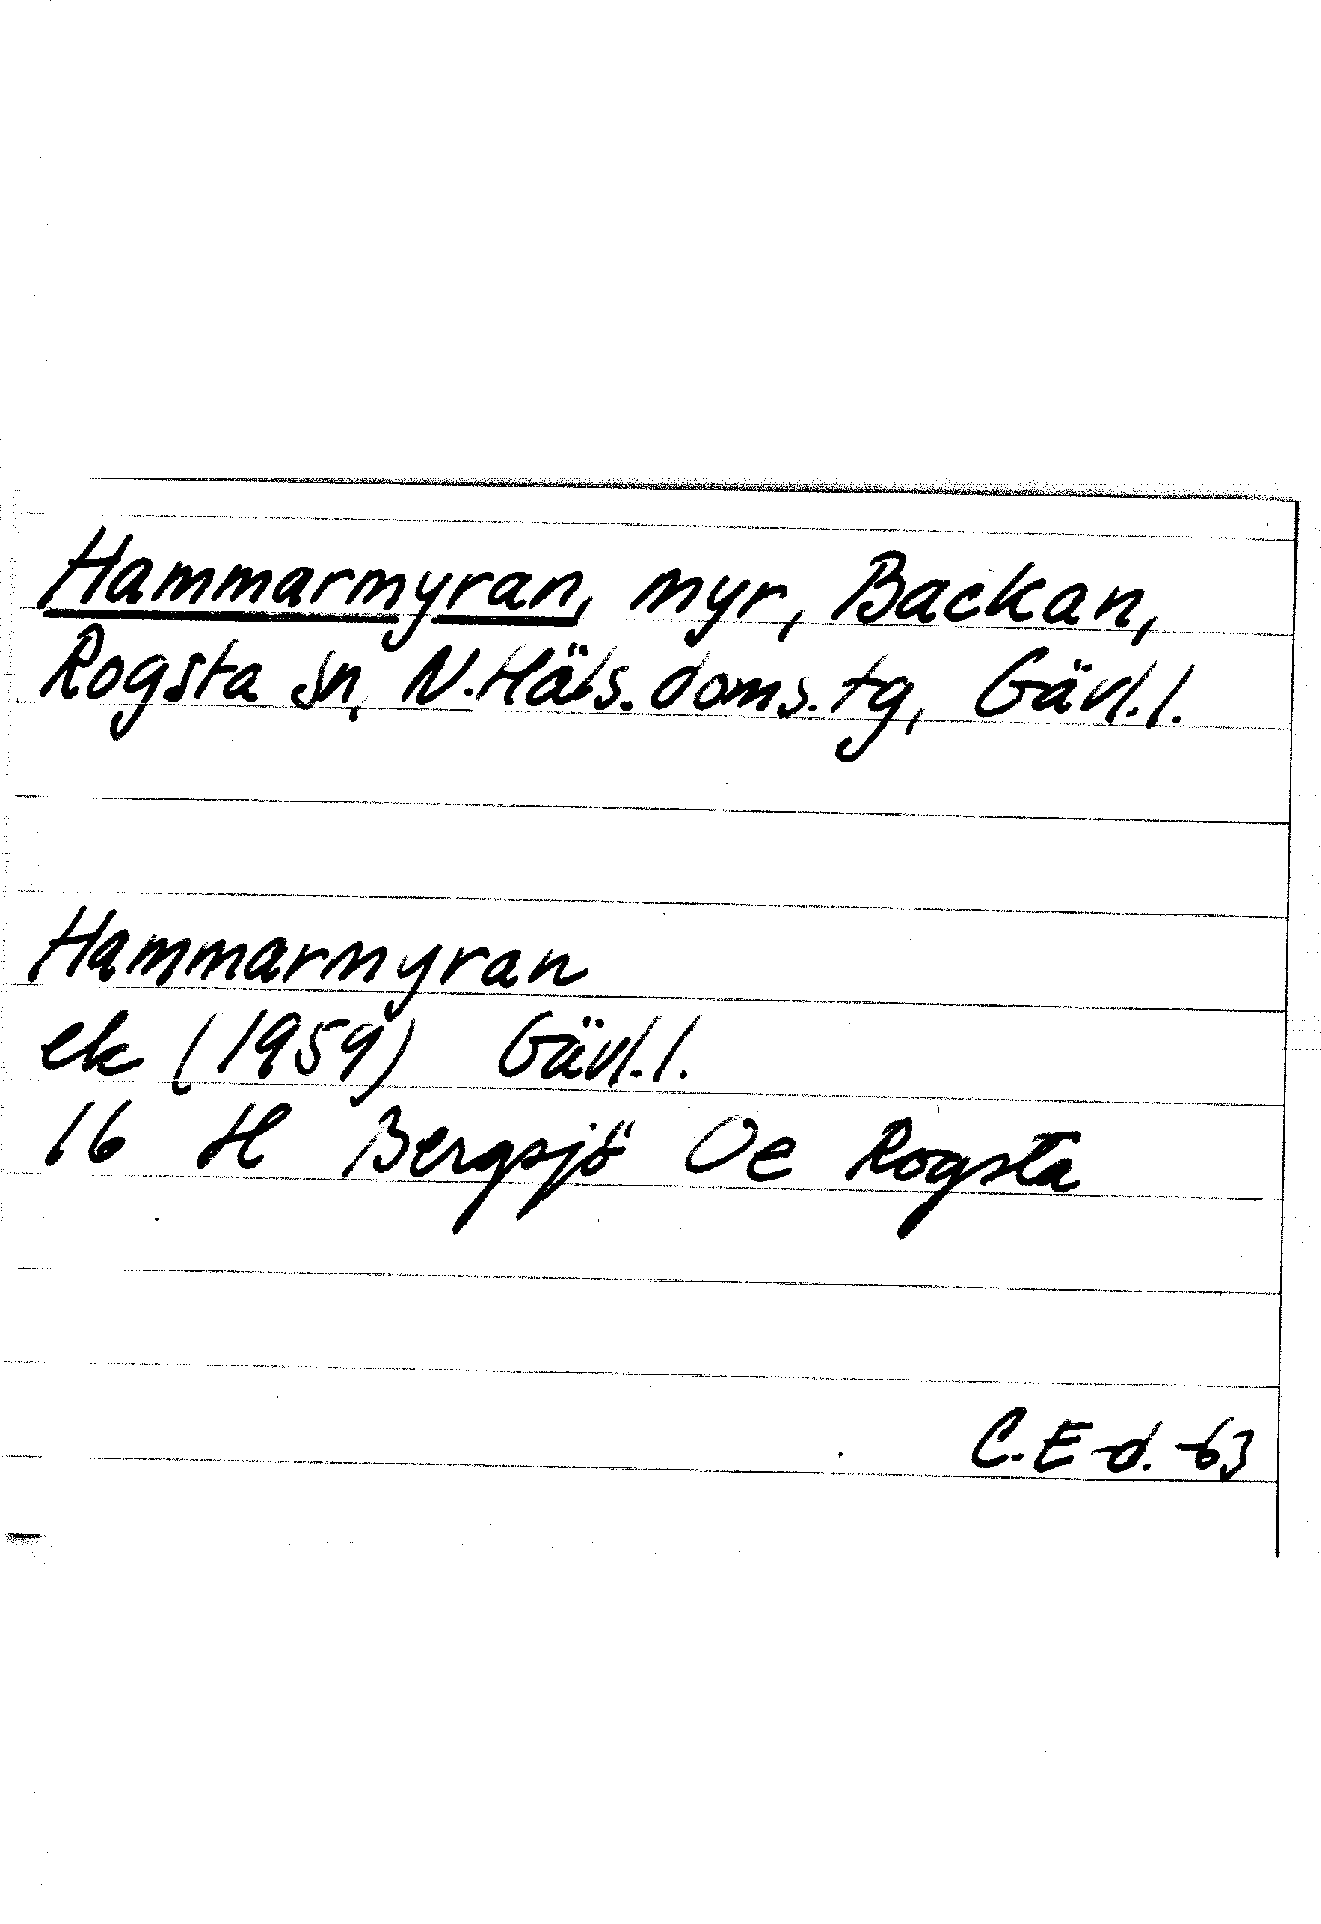 Hammarmyran, myr, Backan,
Rogsta sn, N.Häls.doms.tg, Gävl.l.
Hammarmyran
ek (1959) Gävl.l.
16 H Bergsjö Oe Rogsta
C.E-d. -63